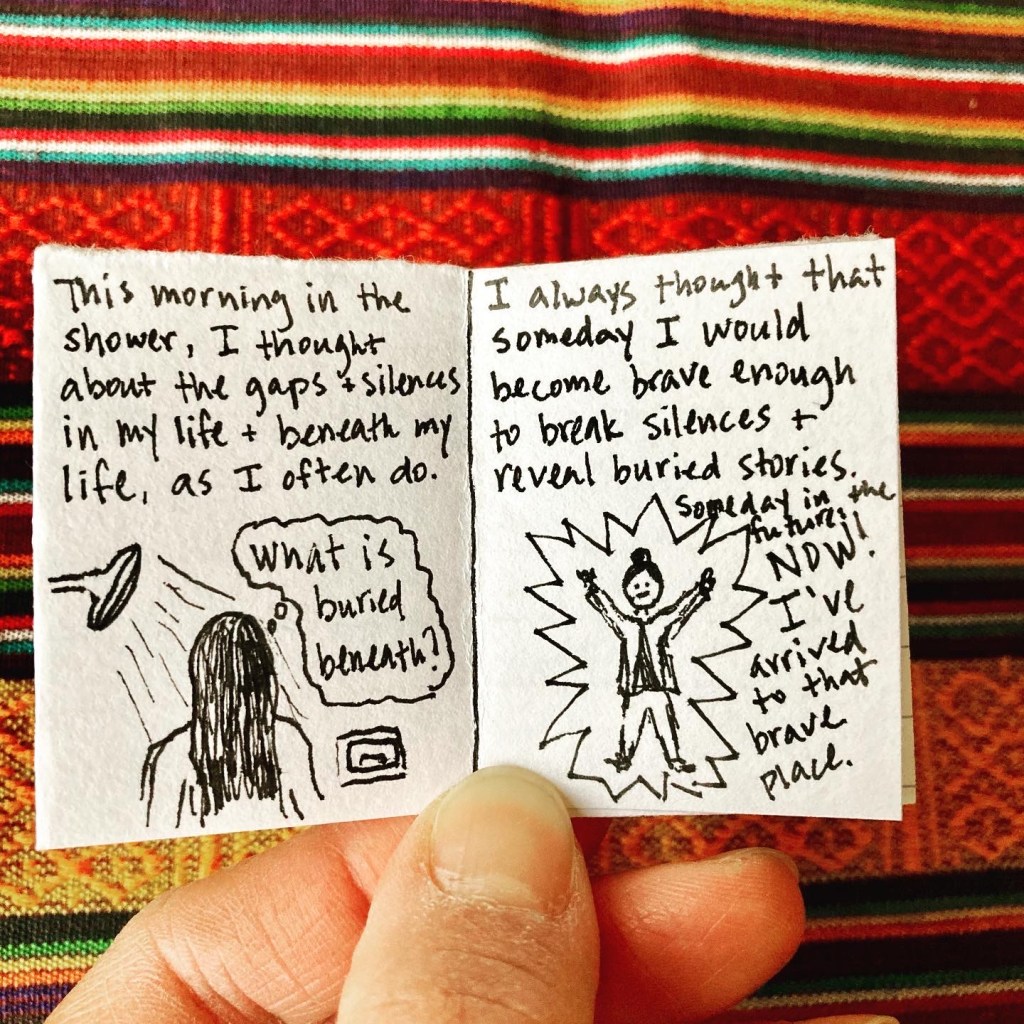 This morning in the
shower, I thought
about the gaps + silences
in my life + beneath my
life, as I often do.
What is
buried
beneath?
I always thought that
someday I would
become brave enough
to break silences +
reveal buried stories.
Someday in the
future:
NOW!
I've
arrived
to that
brave
place.